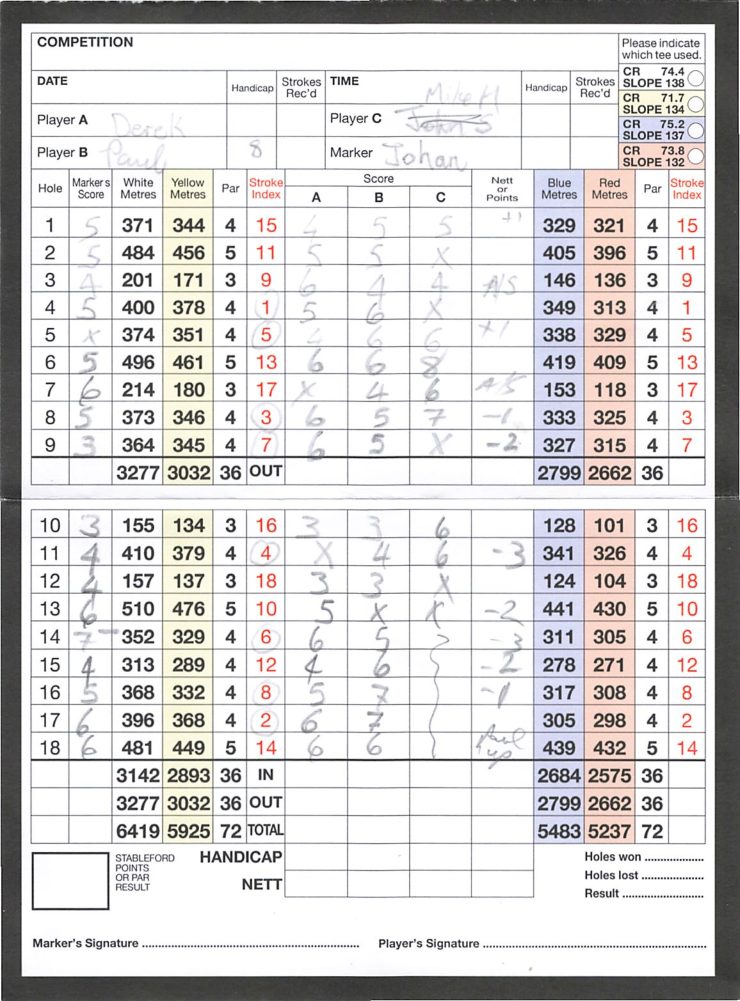 COMPETITION
Please indicate which tee used.
DATE Handicap Strokes Rec'd TIME Handicap Strokes Rec'd
CR 74.4 SLOPE 138
CR 71.7 SLOPE 134
CR 75.2 SLOPE 137
CR 73.8 SLOPE 132
Player A Derek Player C Mike H
Player B Paul 8 Marker Johan
Hole Marker's Score White Metres Yellow Metres Par Stroke Index Score A B C Nett or Points Blue Metres Red Metres Par Stroke Index
1 5 371 344 4 15 4 5 5 +1 329 321 4 15
2 5 484 456 5 11 5 5 X 405 396 5 11
3 4 201 171 3 9 6 4 4 A/S 146 136 3 9
4 5 400 378 4 1 5 6 X 349 313 4 1
5 X 374 351 4 5 4 6 6 +1 338 329 4 5
6 5 496 461 5 13 6 6 8 419 409 5 13
7 6 214 180 3 17 X 4 6 A/S 153 118 3 17
8 5 373 346 4 3 6 5 7 -1 333 325 4 3
9 3 364 345 4 7 6 5 X -2 327 315 4 7
3277 3032 36 OUT 2799 2662 36
10 3 155 134 3 16 3 3 6 128 101 3 16
11 4 410 379 4 4 X 4 6 -3 341 326 4 4
12 4 157 137 3 18 3 3 X 124 104 3 18
13 6 510 476 5 10 5 X X -2 441 430 5 10
14 7 352 329 4 6 6 5 -3 311 305 4 6
15 4 313 289 4 12 4 6 -2 278 271 4 12
16 5 368 332 4 8 5 7 -1 317 308 4 8
17 6 396 368 4 2 6 7 305 298 4 2
18 6 481 449 5 14 6 6 up 439 432 5 14
3142 2893 36 IN 2684 2575 36
3277 3032 36 OUT 2799 2662 36
6419 5925 72 TOTAL 5483 5237 72
STABLEFORD POINTS OR PAR RESULT HANDICAP Holes won ....................
NETT Holes lost ....................
Result ....................
Marker's Signature .................... Player's Signature ....................